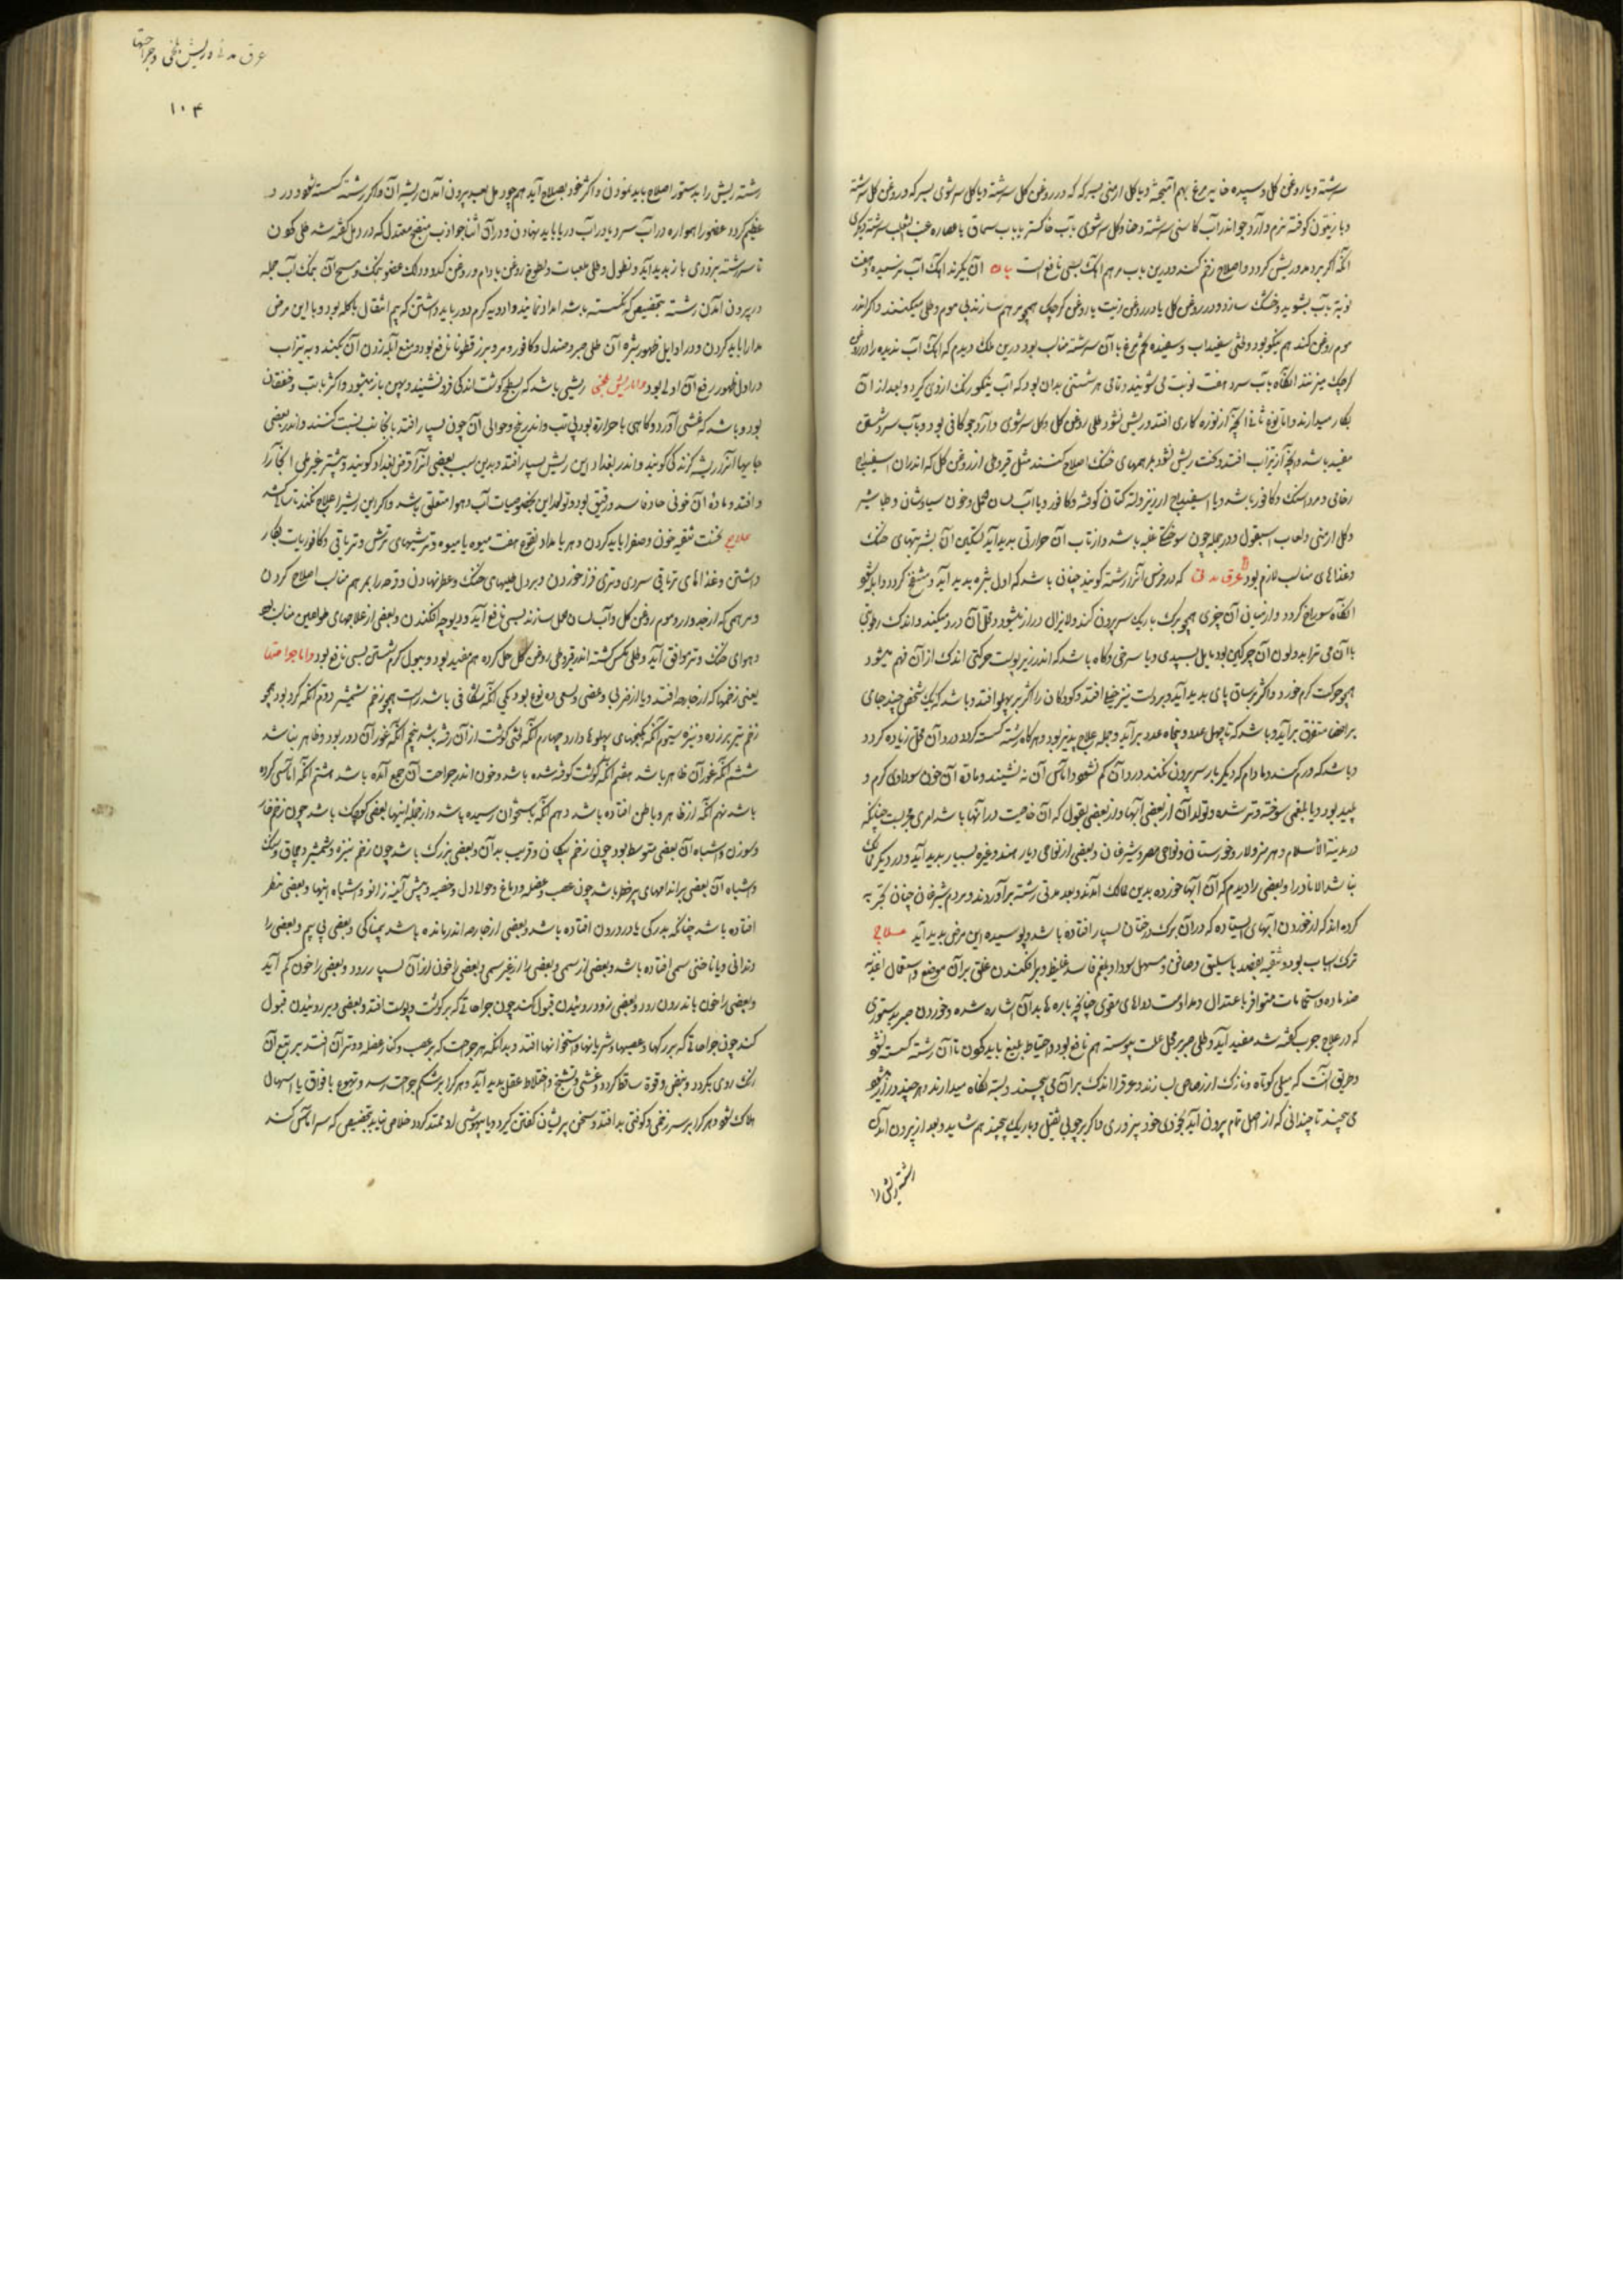 سرشته و یا روغن گل و سپیده خایه مرغ بهم آمیخته و یا گل ارمنی بسرکه که در روغن گل سرشته و یا گل سرشوی بسرکه و روغن گل سرشته
و یا زیتون کوفته نرم و آرد جو اندر آب کاسنی سرشته و حنا و گل سرشوی بآب خاکستر یا بآب سماق یا عصاره عنب الثعلب سرشته دیگری
انکه اگر برد مد و ریش گردد و اصلاح زخم کنند و درین باب مرهم اهک بسی نافع است آن بگیرند اهک آب نرسیده و هفت
نوبة بآب بشویند و خشک سازند و در روغن گل یا در روغن زیت یا روغن کرچک همچو مرهم سازند بی موم و طلی میکنند و اگر اندر
موم روغن کنند هم نیکو بود وقتی سفیداب و سفیده تخم مرغ با آن سرشته مناب بود درین ملک دیدم که اهک آب ندیده را در روغن
کرچک میزنند انگاه بآب سرد هفت نوبت می شویند و تمامی هر شستنی بدان بود که آب نیکو رنگ ازوی گیرد و بعد از آن
بکار میدارند و انچه از نوره کاری افتد و ریش نشود طلی روغن گل و گل سرشوی و آرد جو کافی بود و بآب سرد شستن
مفید باشد و انچه از تیزاب افتد و سخت ریش شود بمرهمهای خنک اصلاح کنند مثل قیروطی از روغن گل که اندران اسفیداج
رخامی و مرداسنگ و کافور باشد و یا اسفیداج ارزیز و لته کتان کوفته و کافور و با آب لسان الحمل و خون سیاوشان و طباشیر
و گل ارمنی و لعاب اسبغول و در جمله چون سوختگی غلبه باشد و از تاب آن حرارتی پدید آید تسکین آن بشربتهای خنک
و غذاهای مناسب لازم بود عرق مدنی که در فرس آنرا رشته گویند چنان باشد که اول بثره پدید آید و منتفخ گردد و آبله شود
انگاه سوراخ گردد و از میان آن چیزی همچو رگ باریک سر بیرون کند و لایزال دراز میشود و محل آن درد میکند و اندک رطوبتی
با آن می ترابد و لون آن چرکین بود مایل بسپیدی و یا سرخی و گاه باشد که اندر زیر پوست حرکتی اندک از آن فهم میشود
همچو حرکت کرم خورد و اکثر بر ساق پای پدید آید و بر دست نیز خیلی افتد و کودکان را اکثر بر پهلو افتد و باشد که یک شخص چند جای
بر اعضا متفرق برآید و باشد که تا چهل عدد و پنجاه عدد برآید و جمله علاج پذیر بود و هرگاه رشته گسسته گردد درد آن محل زیاده گردد
و باشد که ورم کند و مادام که دیگر بار سر بیرون نکند درد آن کم نشود و اماس آن نه نشیند و ماده آن خون سوداوی گرم و
پلید بود و یا بلغمی سوخته و تر شده و تولد آن از بعضی آبها و از بعضی بقول که آن خاصیت در انها باشد امری مجربست چنانکه
در مدینة الاسلام و هرمز و لار و خوزستان و نواحی مصر و شیرخان و بعضی از نواحی دیار هند و غیره بسیار پدید آید و در دیگر ممالک
نباشد الا نادرا و بعضی را دیدم که آن آبها خورده بدین ممالک امدند و بعد مدتی رشته برآوردند و مردم شیرخان چنان تجربه
کرده اند که از خوردن ابهای ایستاده که در آن برگ درختان بسیار افتاده باشد و پوسیده این مرض پدید آید علاج
ترک اسباب بود و تنقیه بفصد باسلیق و صافن و مسهل سودا و بلغم فاسد غلیظ و برافکندن علق بر آن موضع و استعمال اغذیه
ضد ماده و استحمامات متواتر باعتدال و مداومت دواهای مقوی چنانچه بارها بدان اشاره شده و خوردن صبر بدستوری
که در علاج جرب گفته شد مفید آید و طلی صبر بر محل علت پیوسته هم نافع بود و احتیاط بلیغ باید کردن تا آن رشته گسسته نشود
و طریق آنست که میلی کوتاه و نازک از رصاص بسازند و عرق را اندک اندک بر آن می پیچند و بسته نگاه میدارند و هر چند دراز میشود
می پیچند تا چندانی که از اصل تمام بیرون آید بخودی خود بی زوری و اگر بر چوبی ثقیل و باریک پیچند هم شاید و بعد از بیرون آمدن
رشته ریش را
عرق مدنی و ریش بلخی و جراحتها
۱۰۴
رشته ریش را بدستور اصلاح باید نمودن و اکثر خود بصلاح آید همچو دمل بعد بیرون آمدن ریشه آن و اگر رشته گسسته شود و درد
عظیم گردد عضو را همواره در آب سرد یا در آب دریا باید نهادن و در آن اثنا جواذب منضج معتدل که در دمل گفته شد طلی کردن
تا سر رشته بزودی باز پدید آید و نطول و طلی ملعبات و لطوخ روغن بادام و روغن کدو و دلک عضو بنمک و مسح آن بنمک آب جمله
در بیرون آمدن رشته بتخصیص که گسسته باشد امداد نمایند و ادویه گرم دور باید داشتن که بیم انتقال باکله بود و با این مرض
مدارا باید کردن و در اوایل ظهور بثره آن طلی صبر و صندل و کافور و مر و بزر قطونا نافع بود و منع آبله زدن آن میکند و به تیزاب
در اول ظهور رفع آن اولی بود و اما ریش بلخی ریشی باشد که بسطح گوشت اندکی فرو نشیند و پهن باز میشود و اکثر با تب و خفقان
بود و باشد که غشی آورد و گاهی با حرارة بود بی تب و اندر بلخ و حوالی آن چون بسیار افتد بانجا نسبت کنند و اندر بعضی
جایها آنرا ریشه گزندگی گویند و اندر بغداد این ریش بسیار افتد و بدین سبب بعضی آنرا قرص بغداد گویند و بیشتر غیر ملی انجا را
و افتد و ماده آن خونی حاد فاسد و رقیق بود و تولد این بخصوصیات آب و هوا متعلق باشد و اگر این ریش را علاج نکنند تا یکسال بکشد
علاج نخست تنقیه خون و صفرا باید کردن و هر بامداد نقوع هفت میوه یا میوه و ترشیهای ترش و تریاقی و کافوریات بکار
داشتن و غذاهای تریاقی سردی و تری فزا خوردن و بر دل طلیهای خنک و عطر نهادن و قرحه را بمرهم مناسب اصلاح کردن
و مرهمی که از جدوار و موم روغن گل و آب لسان الحمل سازند بسی نافع آید و دیوچه افکندن و بعضی از علاجهای طواعین مناسب بود
و هوای خنک و تر موافق آید و طلی مگس کشته اندر قیروطی روغن گل حل کرده هم مفید بود و ببول گرم شستن بسی نافع بود و اما جراحتها
یعنی زخمها که از خارجه افتد و یا از ضربی و عضی و لسعی ده نوع بود یکی آنکه شکافی باشد راست همچو زخم شمشیر دوم انکه گرد بود همچو
زخم تیر بر زده و نیزه سیوم آنکه کنجهای پهلوها دارد چهارم آنکه لختی گوشت از آن رفته باشد پنجم آنکه غور آن دور بود و ظاهر نباشد
ششم آنکه غور آن ظاهر باشد هفتم آنکه گوشت کوفته شده باشد و خون اندر جراحت آن جمع آمده باشد هشتم آنکه اماس کرده
باشد نهم آنکه از ظاهر و باطن افتاده باشد دهم آنکه باستخوان رسیده باشد و از جمله اینها بعضی کوچک باشد چون زخم خار
و سوزن و اشباه آن بعضی متوسط بود چون زخم پیکان و قریب بدان و بعضی بزرگ باشد چون زخم نیزه و شمشیر و چماق و سنگ
و اشباه آن بعضی بر اندامهای پر خطر باشد چون عصب و عضله و دماغ و حوالی دل و خصیه و پیش آینه زانو و اشباه اینها و بعضی منظر
افتاده باشد چنانکه بدرگی یا در درون افتاده باشد و بعضی از خارجه اندر مانده باشد به پیکانی و بعضی بی سم و بعضی را
دندانی و یا ناخنی سمی افتاده باشد و بعضی از سمی و بعضی را از غیر سمی و بعضی را خون از آن بسیار رود و بعضی را خون کم آید
و بعضی را خون باندرون رود و بعضی زود روئیدن قبول کند چون جراحاتی که بر گوشت و پوست افتد و بعضی دیر روئیدن قبول
کند چون جراحاتی که بر رگها و عصبها و شریانها و استخوانها افتد و بدانکه هر جراحت که بر عصب و کنار عضله و وتر آن افتد بر تبع آن
رنگ روی بگردد و نبض و قوة ساقط گردد و غشی و تشنج و اختلاط عقل پدید آید و هر کرا بر شکم جراحت رسد و تهوع یا فواق یا اسهال
هلاک شود و هر کرا بر سر زخمی و کوفتی بد افتد و سخن پریشان گفتن گیرد و یا بیهوشی او ممتد گردد خلاصی نیابد بتخصیص که سر اماس کند